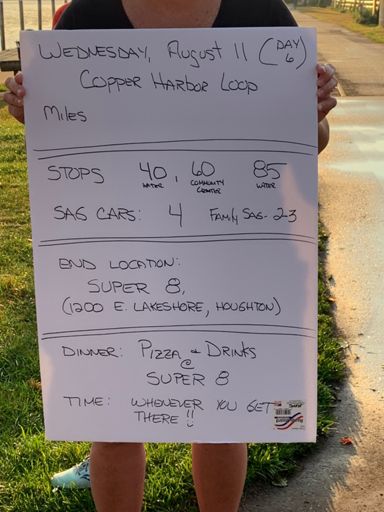 WEDNESDAY, August 11 (DAY 6)
COPPER HARBOR LOOP
Miles
STOPS 40, 60 85
WATER COMMUNITY CENTER WATER
SAG CARS: 4 FAMILY SAG- 2-3
END LOCATION:
SUPER 8,
(1200 E. LAKESHORE, HOUGHTON)
DINNER: PIZZA & DRINKS
@
SUPER 8
TIME: WHENEVER YOU GET
THERE!!